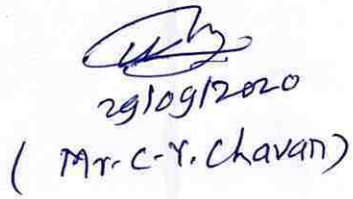 29/09/2020
( Mr. C-Y. Chavan)